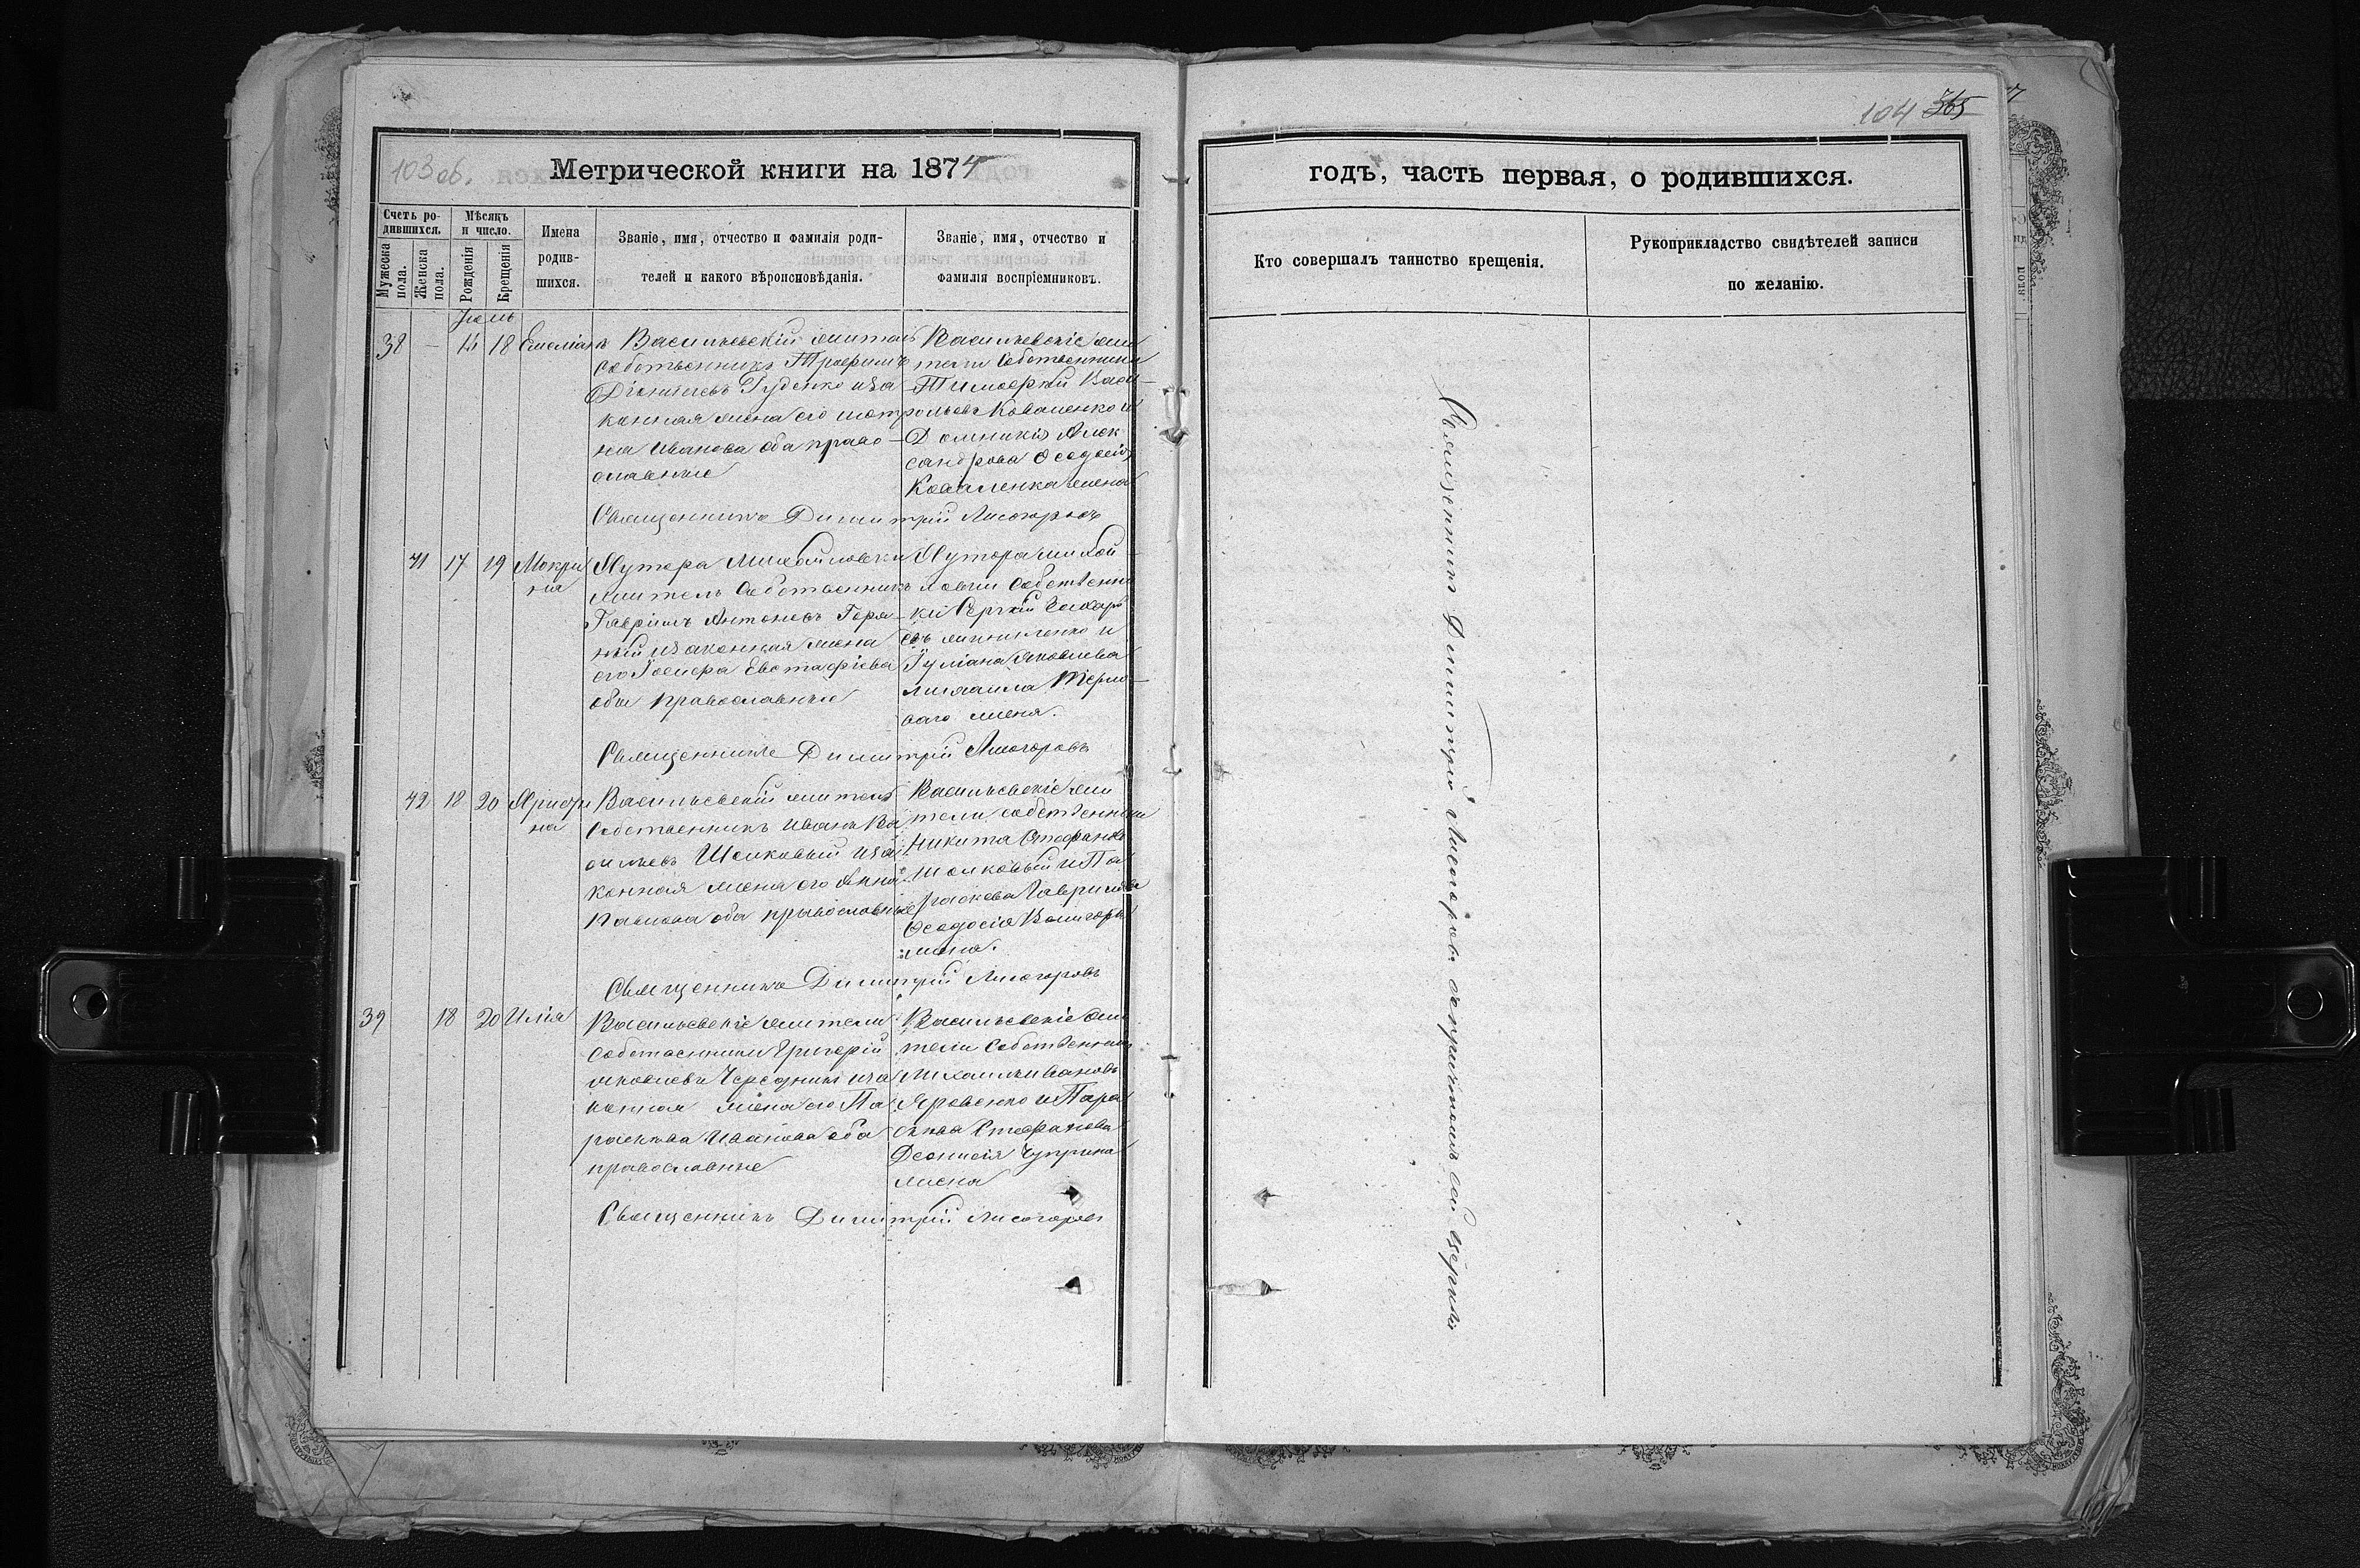 103 об.
Метрической книги на 1874
Счетъ ро-
дившихся.
Мужеска
пола.
Женска
пола.
Мѣсяцъ
и число.
Рожденія
Крещенія
Имена
родив-
шихся.
Званіе, имя, отчество и фамилія роди-
телей и какого вѣроисповѣданія.
Званіе, имя, отчество и
фамилія воспріемниковъ.
38 — 18
Васильевскій житель
собственникъ
Гуденко и за
конная жена его мотро
на Иванова оба право
славные
Васильевскіе жи
тели собственники
Тимофей Васи
льевъ Коваленко и
Домникія Алек
сандрова Феодосія
Коваленка жена
Священникъ Димитрій Лисогоровъ
41 17 19 Мокри
на
Хутора Михайловки
житель собственникъ
Гавріилъ Антоновъ Горя
ный и законная жена
его Евстафіева
оба православные
Хутора михай
ловки собственни
ки Сергій Захарі
евъ и
Іуліана Яковлева
михаила
ваго жена.
Священникъ Димитрій Лисогоровъ
42 18 20
на
Васильевскій житель
собственникъ Иванъ Ва
сильевъ Шелковый и за
конная жена его Анна
Павлова оба православные
Васильевскіе жи
тели собственники
Никита Стефановъ
Шолковый и Па
раскева Гаврилова
Феодосія
жена.
Священникъ Димитрій Лисогоровъ
39 18 20 Илія
Васильевскіе жители
собственники Григорій
Яковлевъ Чередникъ и за
конная жена его Па
раскева Иванова оба
православные
Васильевскіе жи
тели собственники
Михаилъ Ивановъ
Яровенко и Пара
скева Стефанова
Деонисія Чуприна
жена
Священникъ Димитрій Лисогоровъ
104 365
годъ, часть первая, о родившихся.
Кто совершалъ таинство крещенія.
Рукоприкладство свидѣтелей записи
по желанію.
Священникъ Димитрій Лисогоровъ съ причтомъ сей церкви